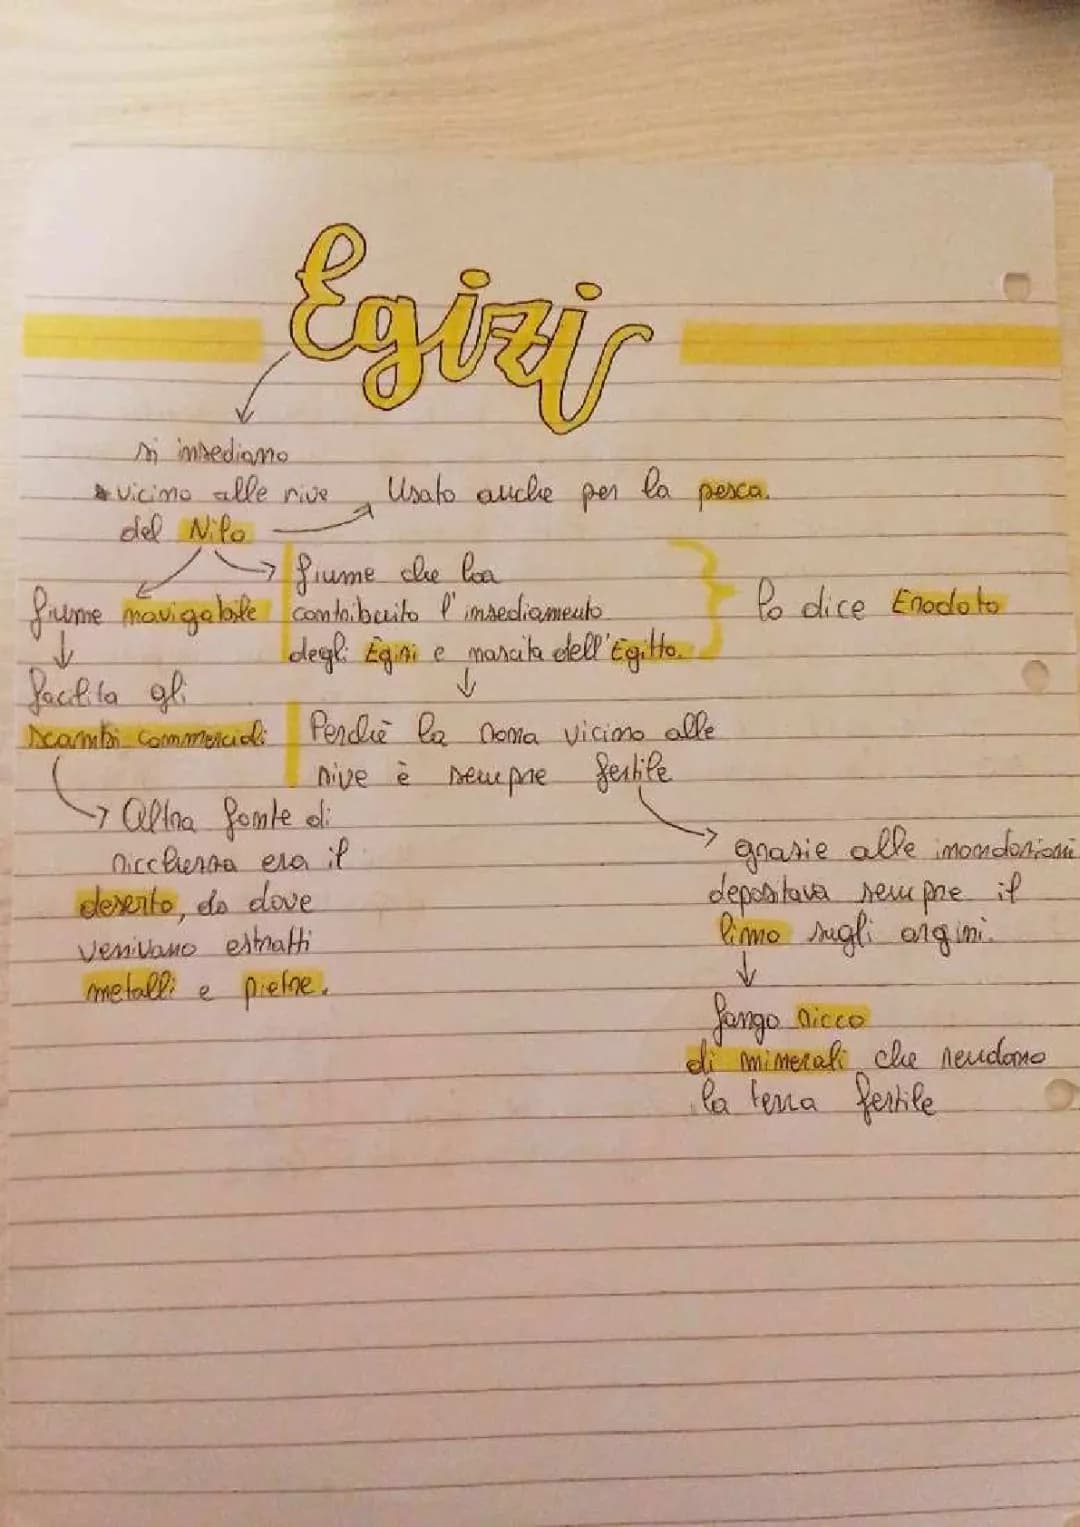 Egizi
si insediano
vicino alle rive
del Nilo
Usato anche per la pesca.
fiume navigabile
facilita gli
scambi commerciali
Altra fonte di
ricchezza era il
deserto, da dove
venivano estratti
metalli e pietre.
fiume che ha
contribuito l'insediamento
degli Egizi e nascita dell'Egitto.
lo dice Erodoto
Perchè la zona vicino alle
rive è sempre fertile
grazie alle inondazioni
depositava sempre il
limo sugli argini.
fango ricco
di minerali che rendono
la terra fertile